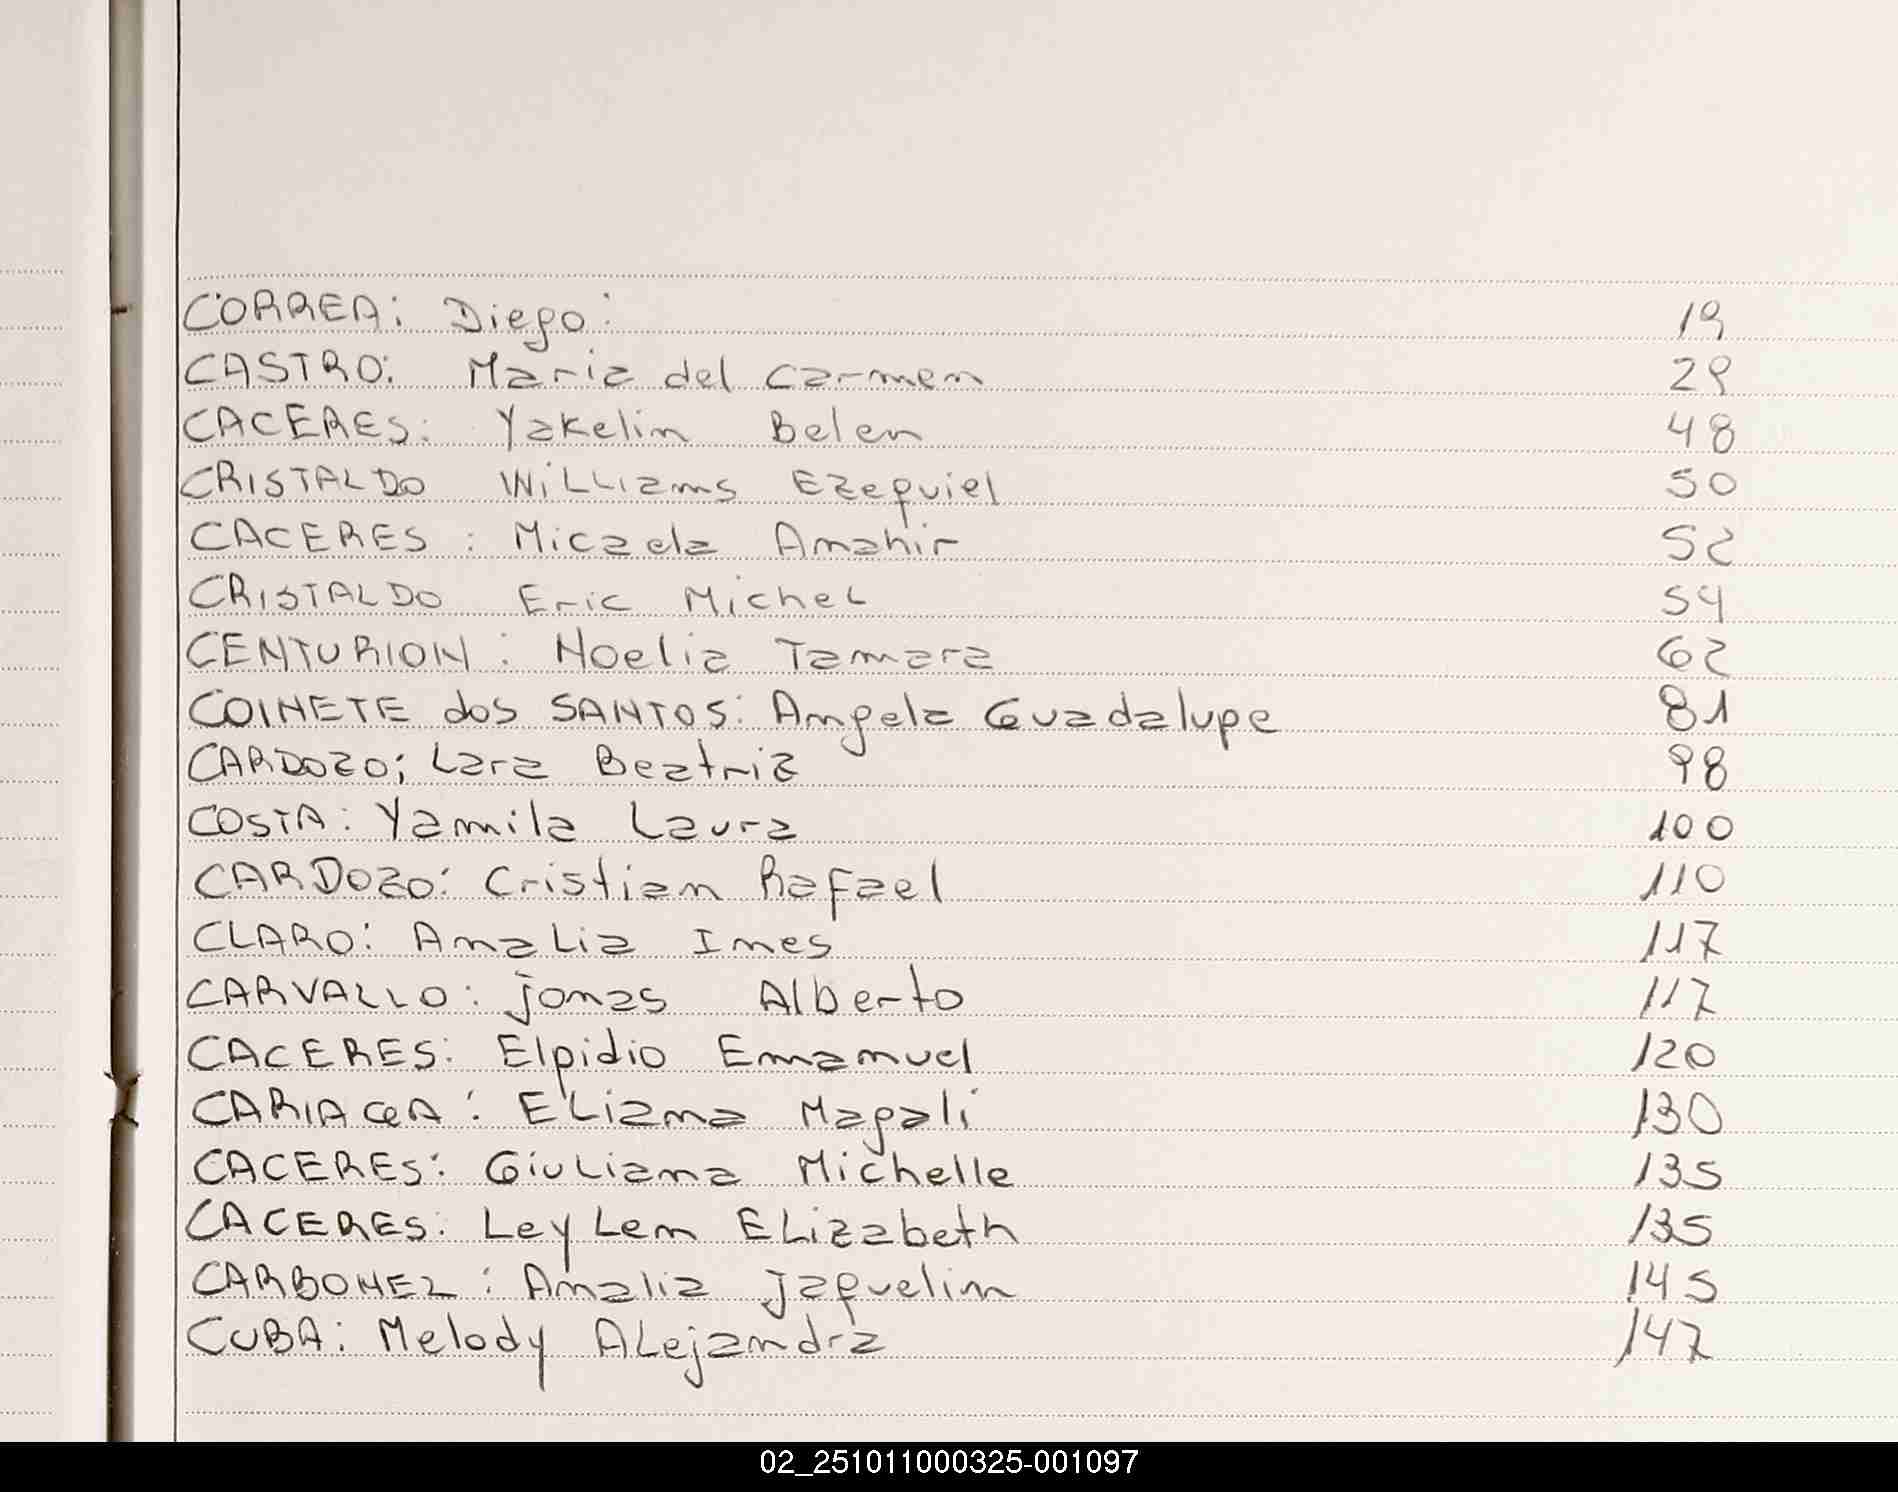 CORREA: Diego: 19
CASTRO: Maria del Carmen 29
CACERES: Yakelin Belen 48
CRISTALDO Williams Ezequiel 50
CACERES: Micaela Amahir 52
CRISTALDO Eric Michel 54
CENTURION: Noelia Tamara 62
COINETE dos SANTOS: Angela Guadalupe 81
CARDOZO; Lara Beatriz 98
COSTA: Yamila Laura 100
CARDOZO: Cristian Rafael 110
CLARO: Amalia Ines 117
CARVALLO: jonas Alberto 117
CACERES: Elpidio Emanuel 120
: Eliana Magali 130
CACERES: Giuliana Michelle 135
CACERES: Leylen Elizabeth 135
CARBONEL: Amalia Jaquelin 145
CUBA: Melody Alejandra 147
02_251011000325-001097